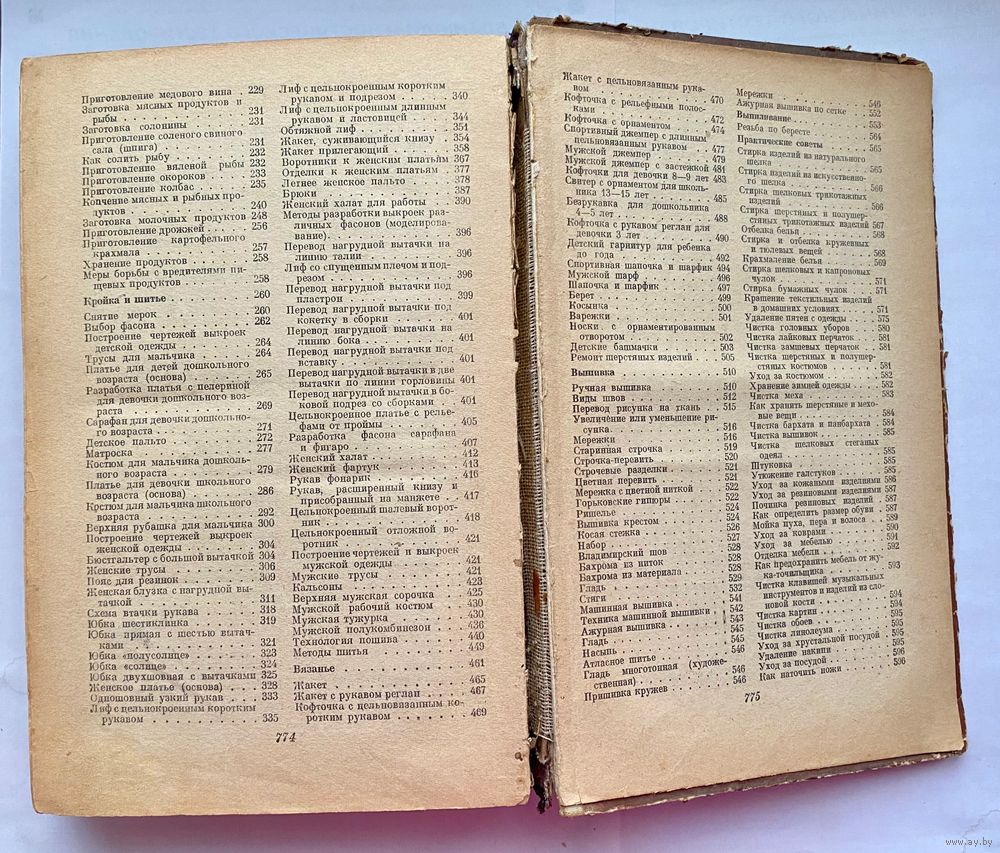 Приготовление медового вина . 229
Заготовка мясных продуктов и
рыбы . . . . . . . . . . . 231
Заготовка солонины . . . . . 231
Приготовление соленого свиного
сала (шпига) . . . . . . . . 231
Как солить рыбу . . . . . . . 232
Приготовление вяленой рыбы 232
Приготовление окороков . . . 233
Приготовление колбас . . . . 235
Копчение мясных и рыбных про-
дуктов . . . . . . . . . . . 240
Заготовка молочных продуктов 248
Приготовление дрожжей . . . 256
Приготовление картофельного
крахмала . . . . . . . . . . 257
Хранение продуктов . . . . . 258
Меры борьбы с вредителями пи-
щевых продуктов . . . . . . 258
Кройка и шитье . . . . . . . 260
Снятие мерок . . . . . . . . 260
Выбор фасона . . . . . . . . 262
Построение чертежей выкроек
детской одежды . . . . . . . 264
Трусы для мальчика . . . . . 264
Платье для детей дошкольного
возраста (основа) . . . . . . 265
Разработка платья с пелериной
для девочки дошкольного воз-
раста . . . . . . . . . . . 269
Сарафан для девочки дошкольно-
го возраста . . . . . . . . . 271
Детское пальто . . . . . . . 272
Матроска . . . . . . . . . . 277
Костюм для мальчика дошколь-
ного возраста . . . . . . . . 279
Платье для девочки школьного
возраста (основа) . . . . . . 286
Костюм для мальчика школьного
возраста . . . . . . . . . . 292
Верхняя рубашка для мальчика 300
Построение чертежей выкроек
женской одежды . . . . . . . 304
Бюстгальтер с большой вытачкой 304
Женские трусы . . . . . . . 306
Пояс для резинок . . . . . . 309
Женская блузка с нагрудной вы-
тачкой . . . . . . . . . . . 311
Схема втачки рукава . . . . . 318
Юбка шестиклинка . . . . . . 319
Юбка прямая с шестью вытач-
ками . . . . . . . . . . . . 321
Юбка «полусолнце» . . . . . 323
Юбка «солнце» . . . . . . . 324
Юбка двухшовная с вытачками 325
Женское платье (основа) . . . 328
Одношовный узкий рукав . . . 333
Лиф с цельнокроеным коротким
рукавом . . . . . . . . . . 335
Лиф с цельнокроеным коротким
рукавом и подрезом . . . . . 340
Лиф с цельнокроеным длинным
рукавом и ластовицей . . . . 344
Обтяжной лиф . . . . . . . . 351
Жакет, суживающийся книзу . 354
Жакет прилегающий . . . . . 358
Воротники к женским платьям 367
Отделки к женским платьям . 377
Летнее женское пальто . . . . 378
Брюки . . . . . . . . . . . 387
Женский халат для работы . . 390
Методы разработки выкроек раз-
личных фасонов (моделирова-
ние) . . . . . . . . . . . . 396
Перевод нагрудной вытачки на
линию талии . . . . . . . . 396
Лиф со спущенным плечом и под-
резом . . . . . . . . . . . 396
Перевод нагрудной вытачки под
пластрон . . . . . . . . . . 399
Перевод нагрудной вытачки под
кокетку в сборки . . . . . . 401
Перевод нагрудной вытачки на
линию бока . . . . . . . . . 401
Перевод нагрудной вытачки под
вставку . . . . . . . . . . 401
Перевод нагрудной вытачки в две
вытачки по линии горловины 401
Перевод нагрудной вытачки в бо-
ковой подрез со сборками . . 401
Цельнокроеное платье с релье-
фами от проймы . . . . . . . 405
Разработка фасона сарафана
и фигаро . . . . . . . . . . 407
Женский халат . . . . . . . 412
Женский фартук . . . . . . . 413
Рукав фонарик . . . . . . . 416
Рукав, расширенный книзу и
присобранный на манжете . . 417
Цельнокроеный шалевый ворот-
ник . . . . . . . . . . . . 418
Цельнокроеный отложной во-
ротник . . . . . . . . . . . 421
Построение чертежей и выкроек
мужской одежды . . . . . . . 421
Мужские трусы . . . . . . . 421
Кальсоны . . . . . . . . . . 423
Верхняя мужская сорочка . . 425
Мужской рабочий костюм . . 430
Мужская тужурка . . . . . . 430
Мужской полукомбинезон . . . 436
Технология пошива . . . . . 440
Методы шитья . . . . . . . . 449
Вязанье . . . . . . . . . . 461
Жакет . . . . . . . . . . . 465
Жакет с рукавом реглан . . . 467
Кофточка с цельновязанным ко-
ротким рукавом . . . . . . . 469
774
Жакет с цельновязанным рука-
вом . . . . . . . . . . . . 470
Кофточка с рельефными полос-
ками . . . . . . . . . . . . 472
Кофточка с орнаментом . . . . 474
Спортивный джемпер с длинным
цельновязанным рукавом . . . 477
Мужской джемпер . . . . . . 479
Мужской джемпер с застежкой 481
Кофточки для девочки 8—9 лет 483
Свитер с орнаментом для школь-
ника 13—15 лет . . . . . . . 485
Безрукавка для дошкольника
4—5 лет . . . . . . . . . . 488
Кофточка с рукавом реглан для
девочки 3 лет . . . . . . . . 490
Детский гарнитур для ребенка
до года . . . . . . . . . . . 492
Спортивная шапочка и шарфик 494
Мужской шарф . . . . . . . 496
Шапочка и шарфик . . . . . 497
Берет . . . . . . . . . . . 499
Косынка . . . . . . . . . . 500
Варежки . . . . . . . . . . 501
Носки с орнаментированным
отворотом . . . . . . . . . . 502
Детские башмачки . . . . . . 503
Ремонт шерстяных изделий . . 505
Вышивка . . . . . . . . . . 510
Ручная вышивка . . . . . . . 510
Виды швов . . . . . . . . . 512
Перевод рисунка на ткань . . 515
Увеличение или уменьшение ри-
сунка . . . . . . . . . . . 516
Мережки . . . . . . . . . . 516
Старинная строчка . . . . . . 519
Строчка-перевить . . . . . . 520
Строчевые разделки . . . . . 521
Цветная перевить . . . . . . 521
Мережка с цветной ниткой . . 522
Горьковские гипюры . . . . . 522
Ришелье . . . . . . . . . . 524
Вышивка крестом . . . . . . 524
Косая стежка . . . . . . . . 526
Набор . . . . . . . . . . . 527
Владимирский шов . . . . . . 528
Бахрома из ниток . . . . . . 528
Бахрома из материала . . . . 528
Гладь . . . . . . . . . . . 529
Стяги . . . . . . . . . . . 532
Машинная вышивка . . . . . 541
Техника машинной вышивки . 542
Ажурная вышивка . . . . . . 543
Гладь . . . . . . . . . . . 545
Насыпь . . . . . . . . . . . 545
Атласное шитье . . . . . . . 545
Гладь многотонная (художе-
ственная) . . . . . . . . . . 546
Пришивка кружев . . . . . . 546
Мережки . . . . . . . . . . 546
Ажурная вышивка по сетке . . 552
Выпиливание . . . . . . . . 553
Резьба по бересте . . . . . . 564
Практические советы . . . . . 565
Стирка изделий из натурального
шелка . . . . . . . . . . . 565
Стирка изделий из искусственно-
го шелка . . . . . . . . . . 566
Стирка шелковых трикотажных
изделий . . . . . . . . . . . 566
Стирка шерстяных и полушер-
стяных трикотажных изделий 567
Отбелка белья . . . . . . . . 568
Стирка и отбелка кружевных
и тюлевых вещей . . . . . . 568
Крахмаление белья . . . . . . 569
Стирка шелковых и капроновых
чулок . . . . . . . . . . . 571
Стирка бумажных чулок . . . 571
Крашение текстильных изделий
в домашних условиях . . . . 571
Удаление пятен с одежды . . . 575
Чистка головных уборов . . . 580
Чистка лайковых перчаток . . 581
Чистка замшевых перчаток . . 581
Чистка шерстяных и полушер-
стяных костюмов . . . . . . 581
Уход за костюмом . . . . . . 582
Хранение зимней одежды . . . 582
Чистка меха . . . . . . . . . 583
Как хранить шерстяные и мехо-
вые вещи . . . . . . . . . . 584
Чистка бархата и панбархата . 584
Чистка вышивок . . . . . . . 585
Чистка шелковых стеганых
одеял . . . . . . . . . . . 585
Штуковка . . . . . . . . . . 585
Утюжение галстуков . . . . . 585
Уход за кожаными изделиями 586
Уход за резиновыми изделиями 586
Починка резиновых изделий . 587
Как определить размер обуви . 587
Мойка пуха, пера и волоса . . 589
Уход за коврами . . . . . . . 590
Уход за мебелью . . . . . . . 591
Отделка мебели . . . . . . . 592
Как предохранить мебель от жу-
ка-точильщика . . . . . . . . 593
Чистка клавишей музыкальных
инструментов и изделий из сло-
новой кости . . . . . . . . . 594
Чистка картин . . . . . . . . 594
Чистка обоев . . . . . . . . 595
Чистка линолеума . . . . . . 595
Уход за хрустальной посудой . 595
Удаление накипи . . . . . . . 595
Уход за посудой . . . . . . . 596
Как наточить ножи . . . . . . 596
775
www.ay.by